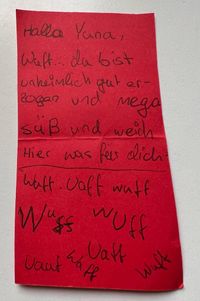 Hallo Yuna,
Wuff... du bist
unheimlich gut er-
zogen und mega
süß und weich.
Hier was für dich:
Wuff. Waff wuff
Wuff wuff
Waff
Wuff
Wuff